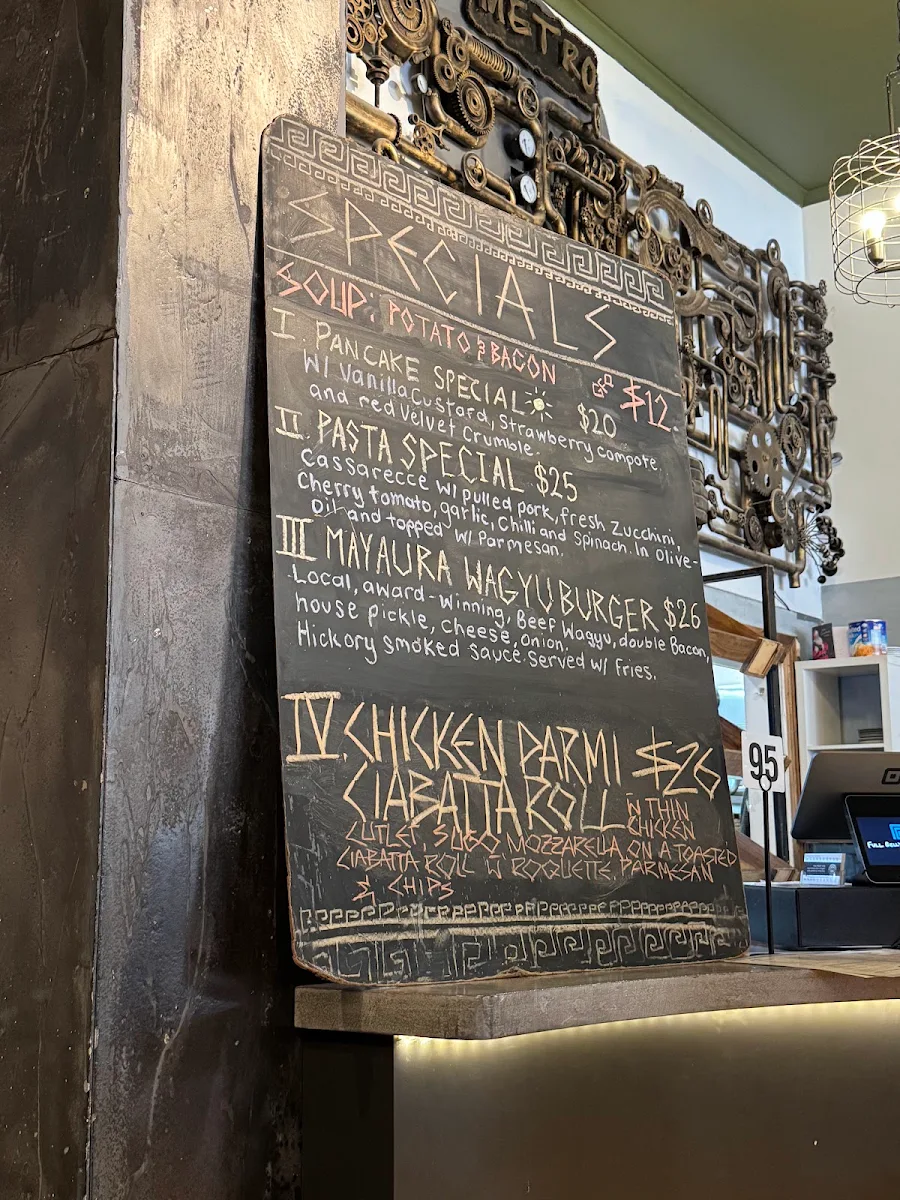 METRO
SPECIALS
SOUP: POTATO & BACON $12
I. PANCAKE SPECIAL $20
W/ Vanilla Custard, Strawberry compote,
and red Velvet Crumble.
II. PASTA SPECIAL $25
Cassarecce W/ pulled pork, fresh Zucchini,
Cherry tomato, garlic, Chilli and Spinach. In Olive-
Oil and topped W/ Parmesan.
III MAYAURA WAGYU BURGER $26
Local, award-winning, Beef Wagyu, double Bacon,
house pickle, cheese, onion.
Hickory smoked sauce. Served W/ Fries.
IV CHICKEN PARMI $26
CIABATTA ROLL W THIN
CHICKEN
CUTLET, SUGO MOZZARELLA ON A TOASTED
CIABATTA ROLL W ROQUETTE, PARMESAN
& CHIPS
95